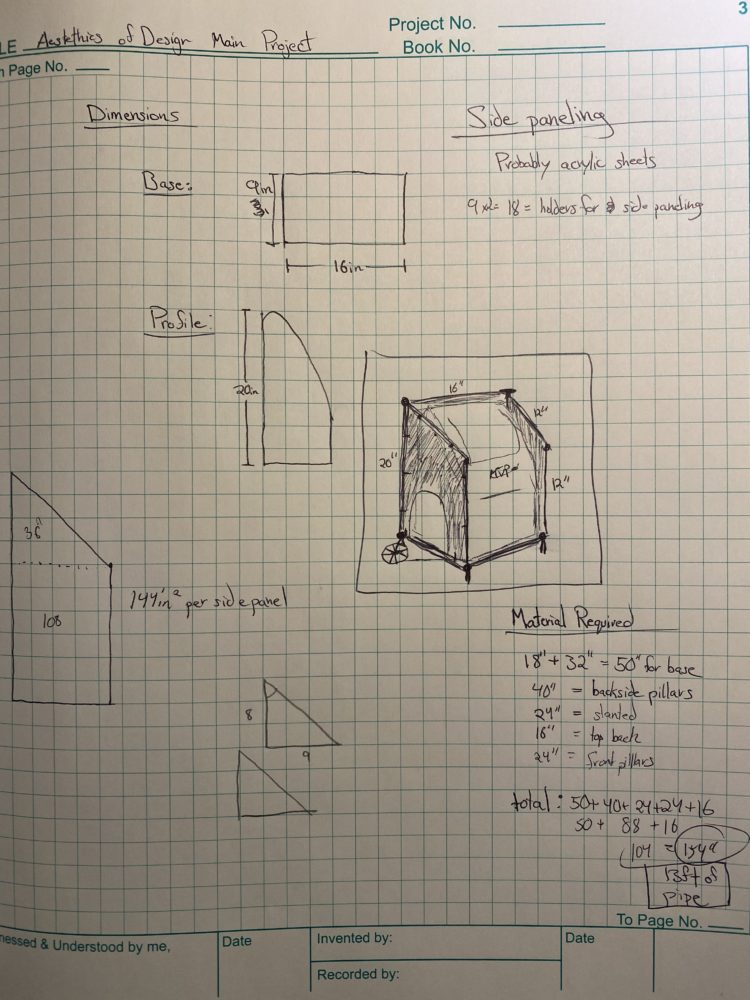 3
Project No.
Book No.
LE Aestethics of Design Main Project
n Page No.
Dimensions
Side paneling
Probably acrylic sheets
9x2= 18 = holders for side paneling
Base:
9in
16in
Profile:
20in
16"
12"
20"
12"
36"
108
144in² per side panel
8
9
Material Required
18" + 32" = 50" for base
40" = backside pillars
24" = slanted
16" = top back
24" = front pillars
total: 50+40+24+24+16
50 + 88 + 16
104 = 154"
13ft of
pipe
To Page No.
nessed & Understood by me,
Date
Invented by:
Date
Recorded by: